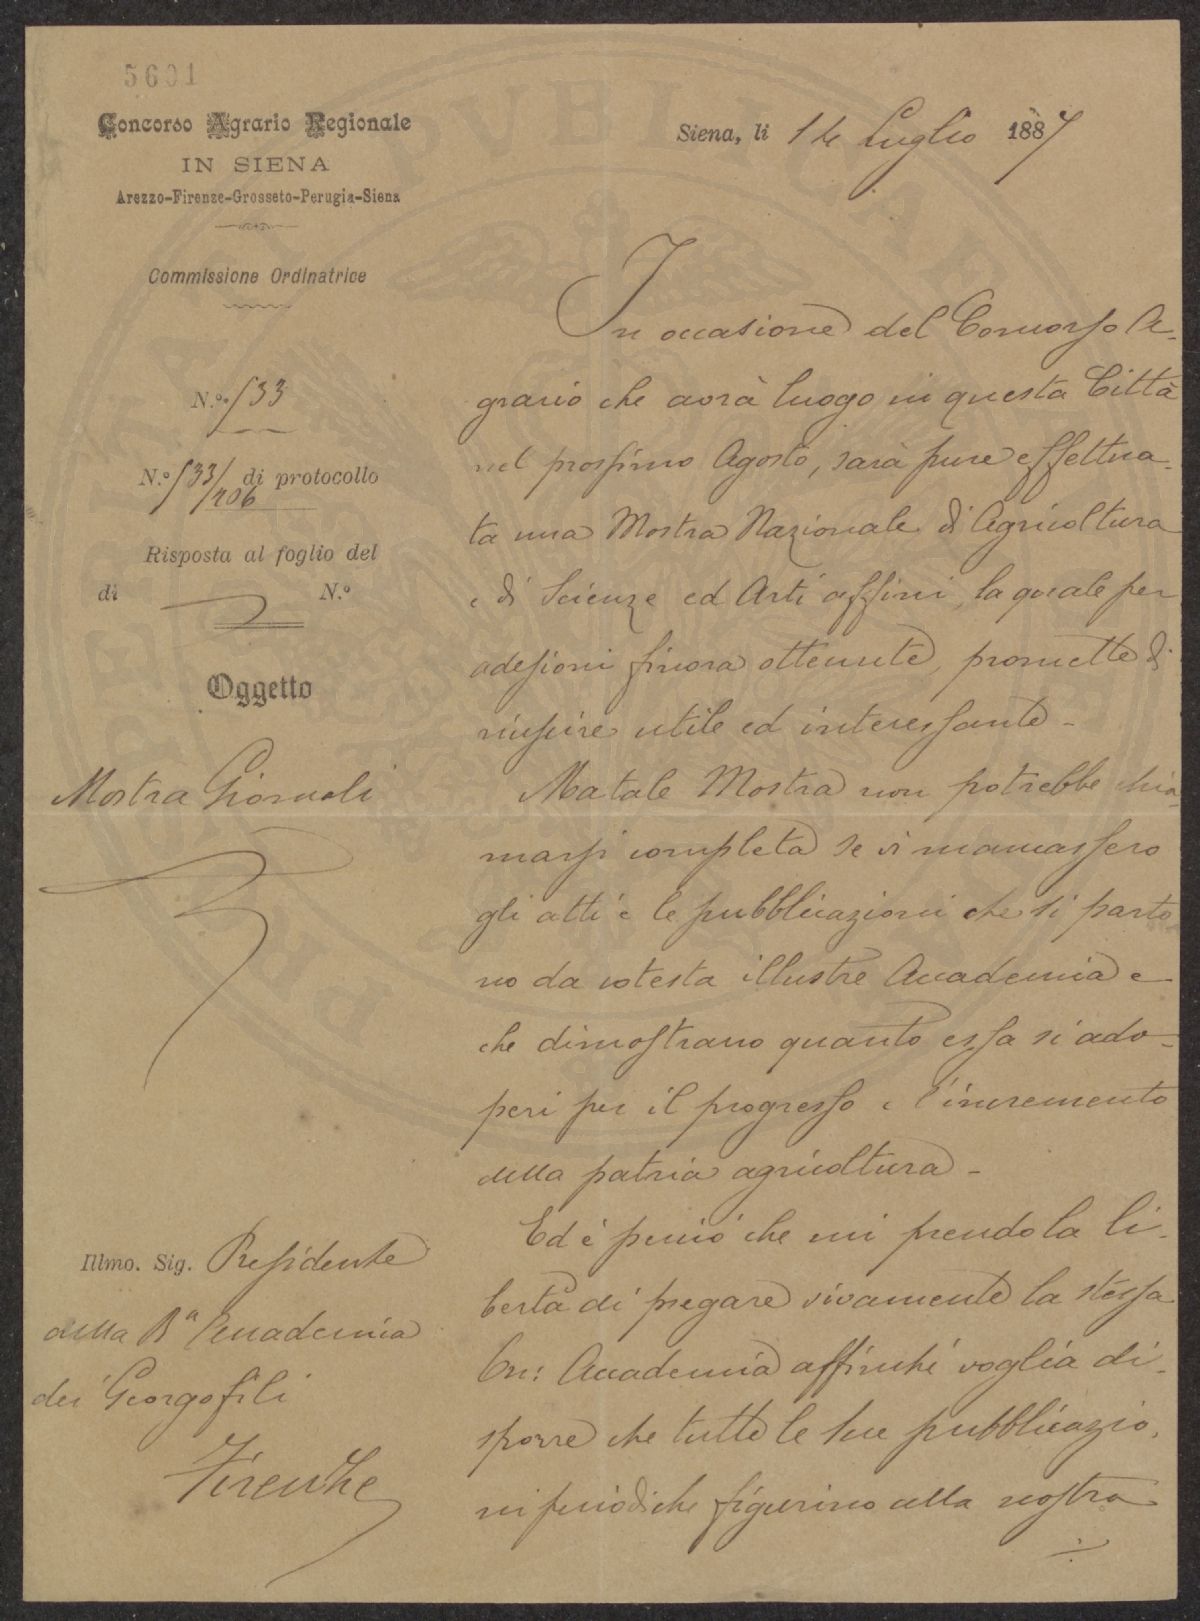 5601
Concorso Agrario Regionale
IN SIENA
Arezzo-Firenze-Grosseto-Perugia-Siena
Commissione Ordinatrice
N.° 533
N.° 533/406 di protocollo
Risposta al foglio del
di N.°
Oggetto
Mostra Giornali
Illmo. Sig. Presidente
della Ra Accademia
dei Georgofili
Firenze
Siena, li Luglio 1887
In occasione del Concorso A-
grario che avrà luogo in questa Città
nel prossimo Agosto, sarà pure effettua-
ta una Mostra Nazionale di Agricoltura
e di Scienze ed Arti affini, la quale per
adesioni finora ottenute, promette di
riuscire utile ed interessante -
Ma tale Mostra non potrebbe chia-
marsi completa se vi mancassero
gli atti e le pubblicazioni che si parto
no da cotesta illustre Accademia e
che dimostrano quanto essa si ado-
peri per il progresso e l'incremento
della patria agricoltura -
Ed è perciò che mi prendo la li-
bertà di pregare vivamente la stessa
On: Accademia affinché voglia di-
sporre che tutte le sue pubblicazio-
ni periodiche figurino alla nostra